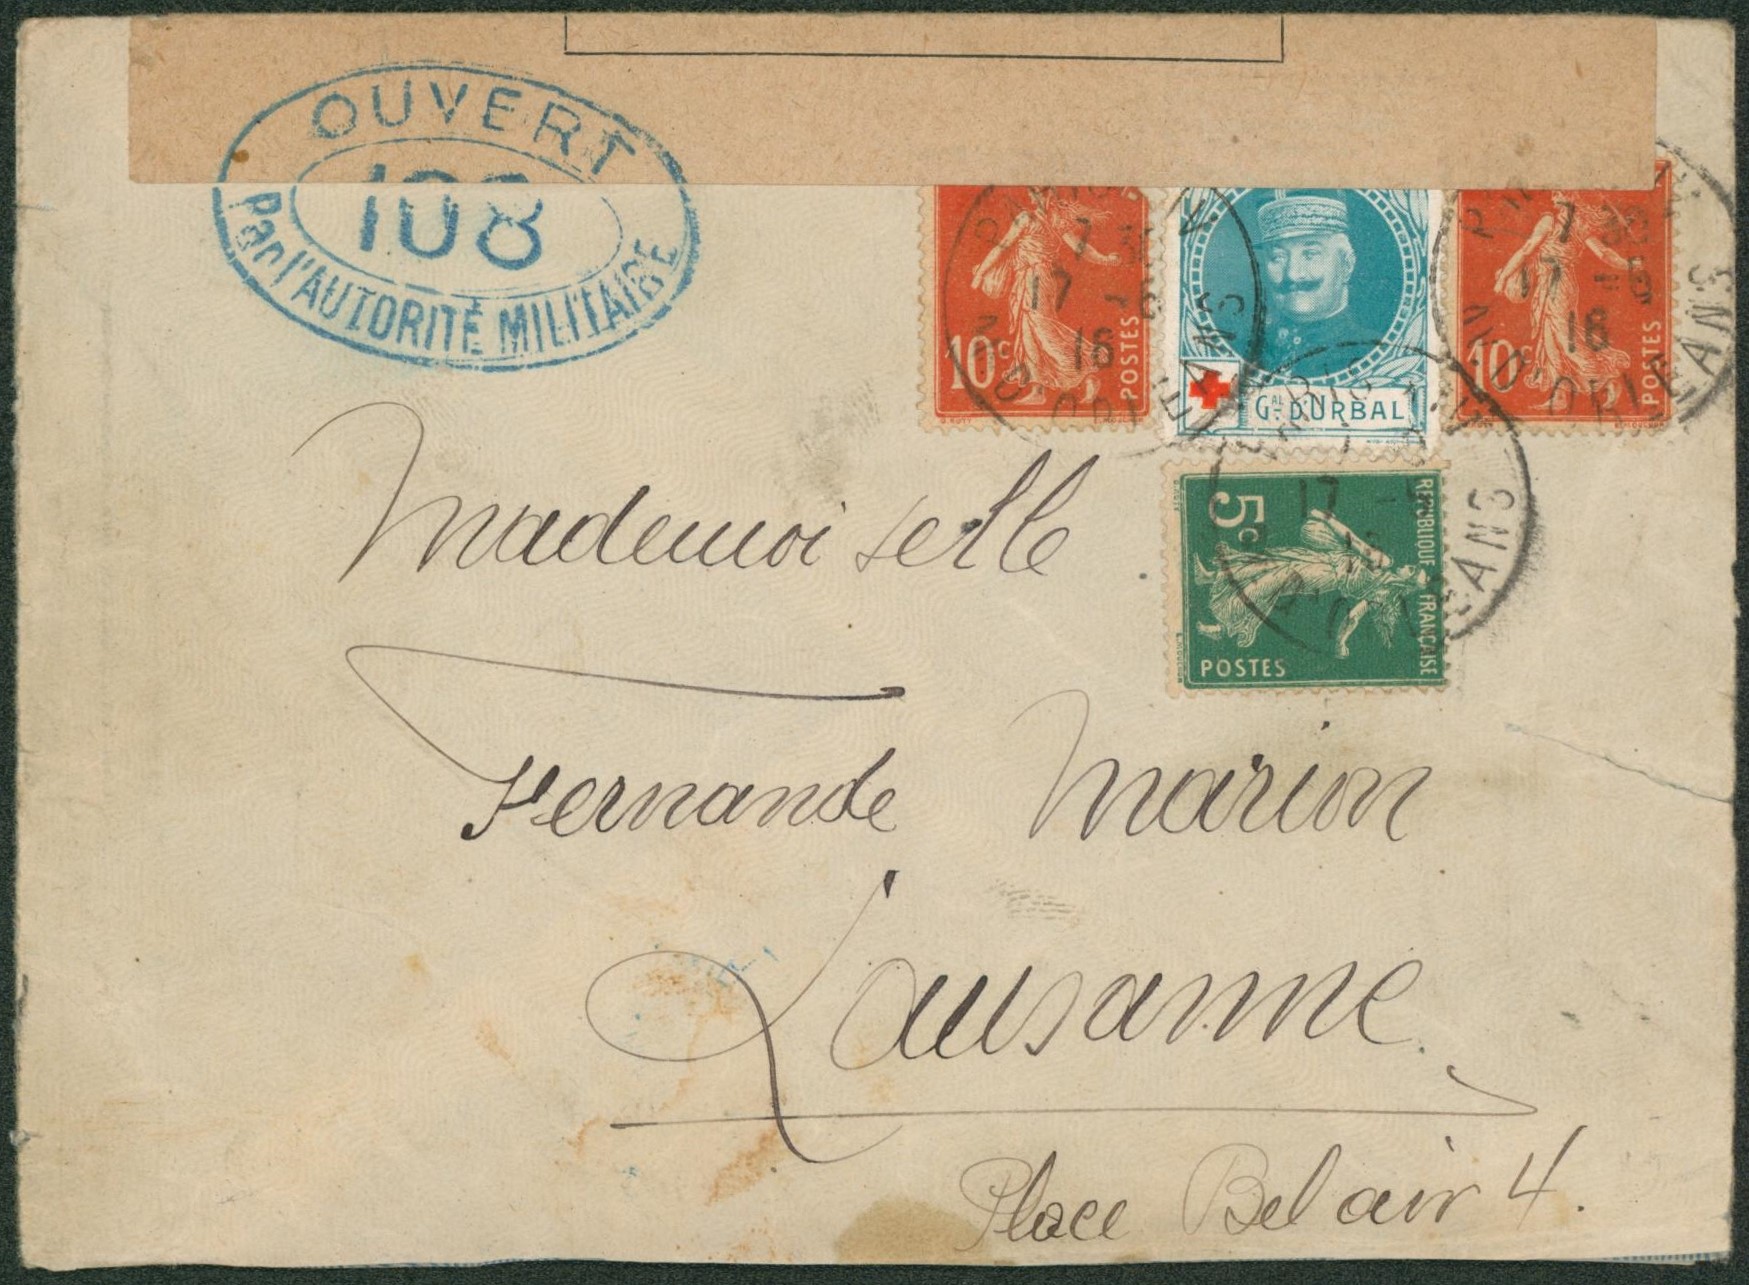 OUVERT
108
Par l'AUTORITÉ MILITAIRE
10c
POSTES
GAL D'URBAL
10c
POSTES
17
16
ORLEANS
17
16
D'ORLEANS
5c
REPUBLIQUE FRANÇAISE
POSTES
17
16
Mademoiselle
Fernande Marion
Lausanne
Place Bel air 4.